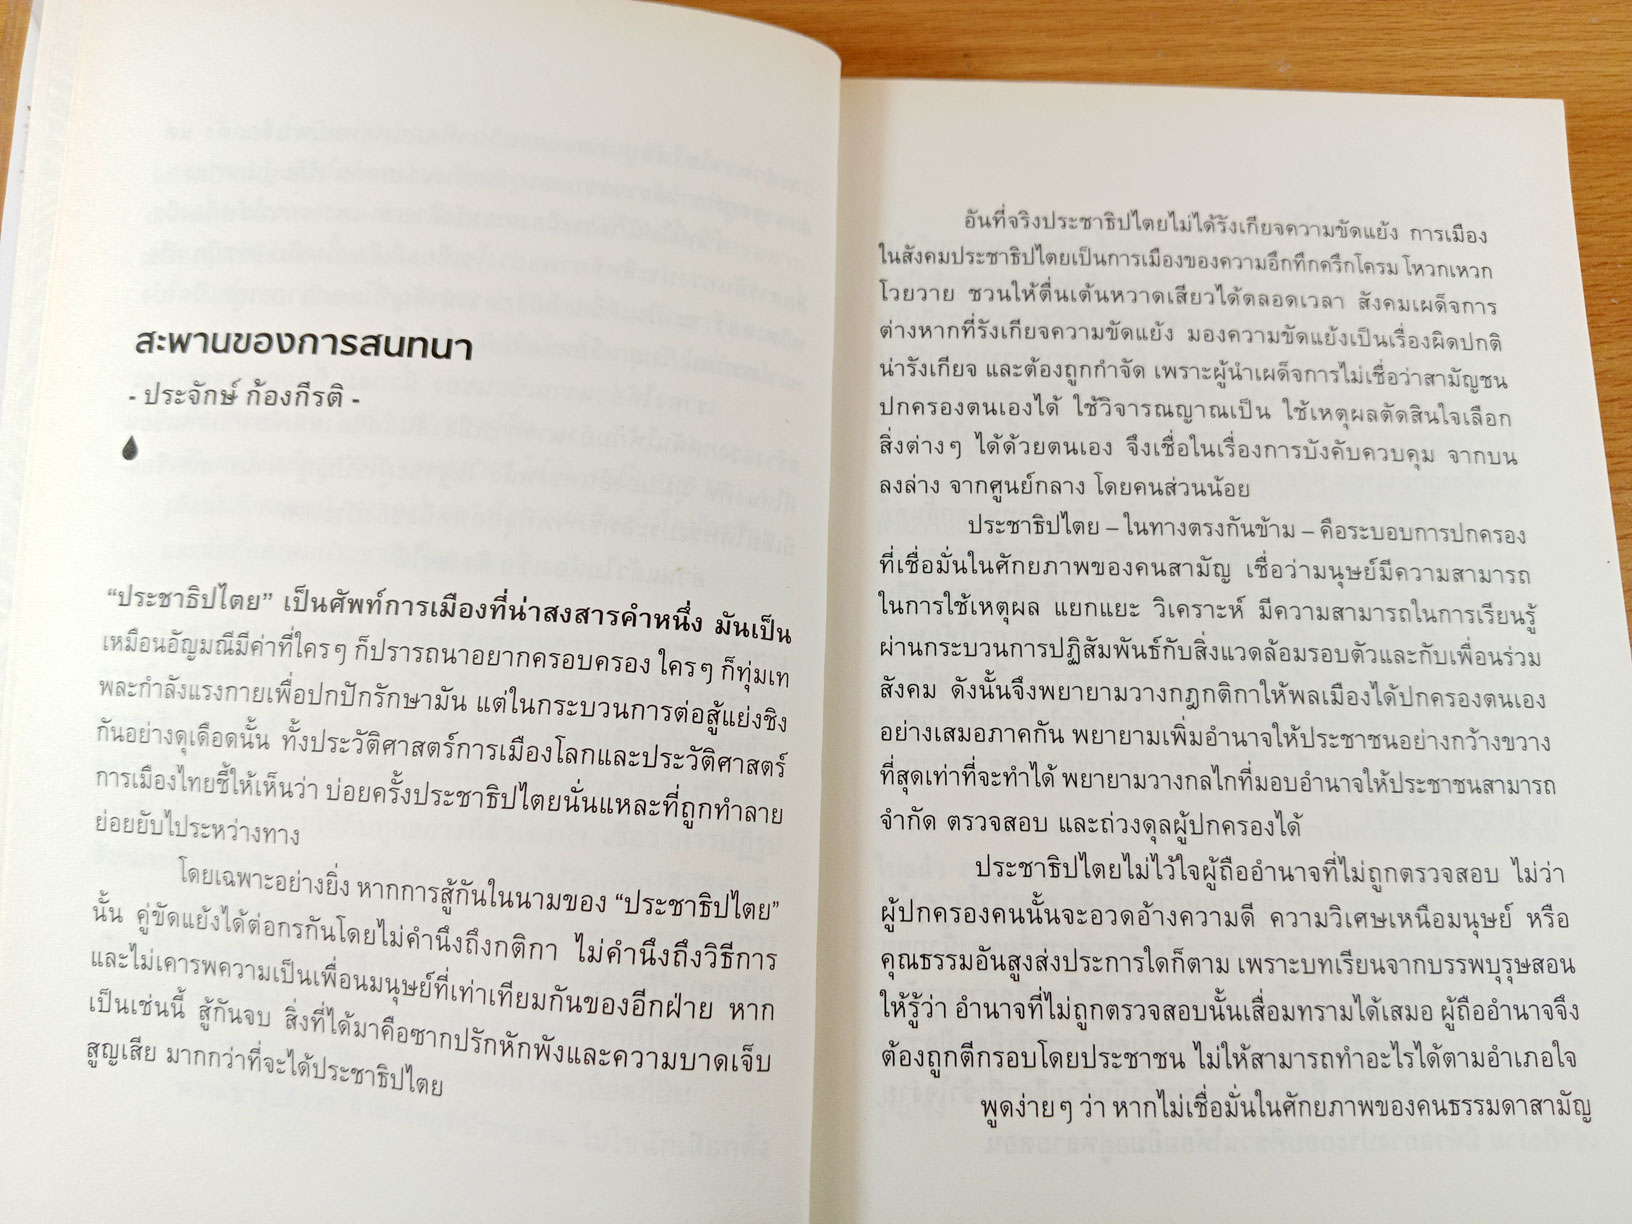 สะพานของการสนทนา
- ประจักษ์ ก้องกีรติ -
“ประชาธิปไตย” เป็นศัพท์การเมืองที่น่าสงสารคำหนึ่ง มันเป็น
เหมือนอัญมณีมีค่าที่ใครๆ ก็ปรารถนาอยากครอบครอง ใครๆ ก็ทุ่มเท
พละกำลังแรงกายเพื่อปกปักรักษามัน แต่ในกระบวนการต่อสู้แย่งชิง
กันอย่างดุเดือดนั้น ทั้งประวัติศาสตร์การเมืองโลกและประวัติศาสตร์
การเมืองไทยชี้ให้เห็นว่า บ่อยครั้งประชาธิปไตยนั่นแหละที่ถูกทำลาย
ย่อยยับไประหว่างทาง
โดยเฉพาะอย่างยิ่ง หากการสู้กันในนามของ “ประชาธิปไตย”
นั้น คู่ขัดแย้งได้ต่อกรกันโดยไม่คำนึงถึงกติกา ไม่คำนึงถึงวิธีการ
และไม่เคารพความเป็นเพื่อนมนุษย์ที่เท่าเทียมกันของอีกฝ่าย หาก
เป็นเช่นนี้ สู้กันจบ สิ่งที่ได้มาคือซากปรักหักพังและความบาดเจ็บ
สูญเสีย มากกว่าที่จะได้ประชาธิปไตย
อันที่จริงประชาธิปไตยไม่ได้รังเกียจความขัดแย้ง การเมือง
ในสังคมประชาธิปไตยเป็นการเมืองของความอึกทึกครึกโครม โหวกเหวก
โวยวาย ชวนให้ตื่นเต้นหวาดเสียวได้ตลอดเวลา สังคมเผด็จการ
ต่างหากที่รังเกียจความขัดแย้ง มองความขัดแย้งเป็นเรื่องผิดปกติ
น่ารังเกียจ และต้องถูกกำจัด เพราะผู้นำเผด็จการไม่เชื่อว่าสามัญชน
ปกครองตนเองได้ ใช้วิจารณญาณเป็น ใช้เหตุผลตัดสินใจเลือก
สิ่งต่างๆ ได้ด้วยตนเอง จึงเชื่อในเรื่องการบังคับควบคุม จากบน
ลงล่าง จากศูนย์กลาง โดยคนส่วนน้อย
ประชาธิปไตย – ในทางตรงกันข้าม – คือระบอบการปกครอง
ที่เชื่อมั่นในศักยภาพของคนสามัญ เชื่อว่ามนุษย์มีความสามารถ
ในการใช้เหตุผล แยกแยะ วิเคราะห์ มีความสามารถในการเรียนรู้
ผ่านกระบวนการปฏิสัมพันธ์กับสิ่งแวดล้อมรอบตัวและกับเพื่อนร่วม
สังคม ดังนั้นจึงพยายามวางกฎกติกาให้พลเมืองได้ปกครองตนเอง
อย่างเสมอภาคกัน พยายามเพิ่มอำนาจให้ประชาชนอย่างกว้างขวาง
ที่สุดเท่าที่จะทำได้ พยายามวางกลไกที่มอบอำนาจให้ประชาชนสามารถ
จำกัด ตรวจสอบ และถ่วงดุลผู้ปกครองได้
ประชาธิปไตยไม่ไว้ใจผู้ถืออำนาจที่ไม่ถูกตรวจสอบ ไม่ว่า
ผู้ปกครองคนนั้นจะอวดอ้างความดี ความวิเศษเหนือมนุษย์ หรือ
คุณธรรมอันสูงส่งประการใดก็ตาม เพราะบทเรียนจากบรรพบุรุษสอน
ให้รู้ว่า อำนาจที่ไม่ถูกตรวจสอบนั้นเสื่อมทรามได้เสมอ ผู้ถืออำนาจจึง
ต้องถูกตีกรอบโดยประชาชน ไม่ให้สามารถทำอะไรได้ตามอำเภอใจ
พูดง่ายๆ ว่า หากไม่เชื่อมั่นในศักยภาพของคนธรรมดาสามัญ